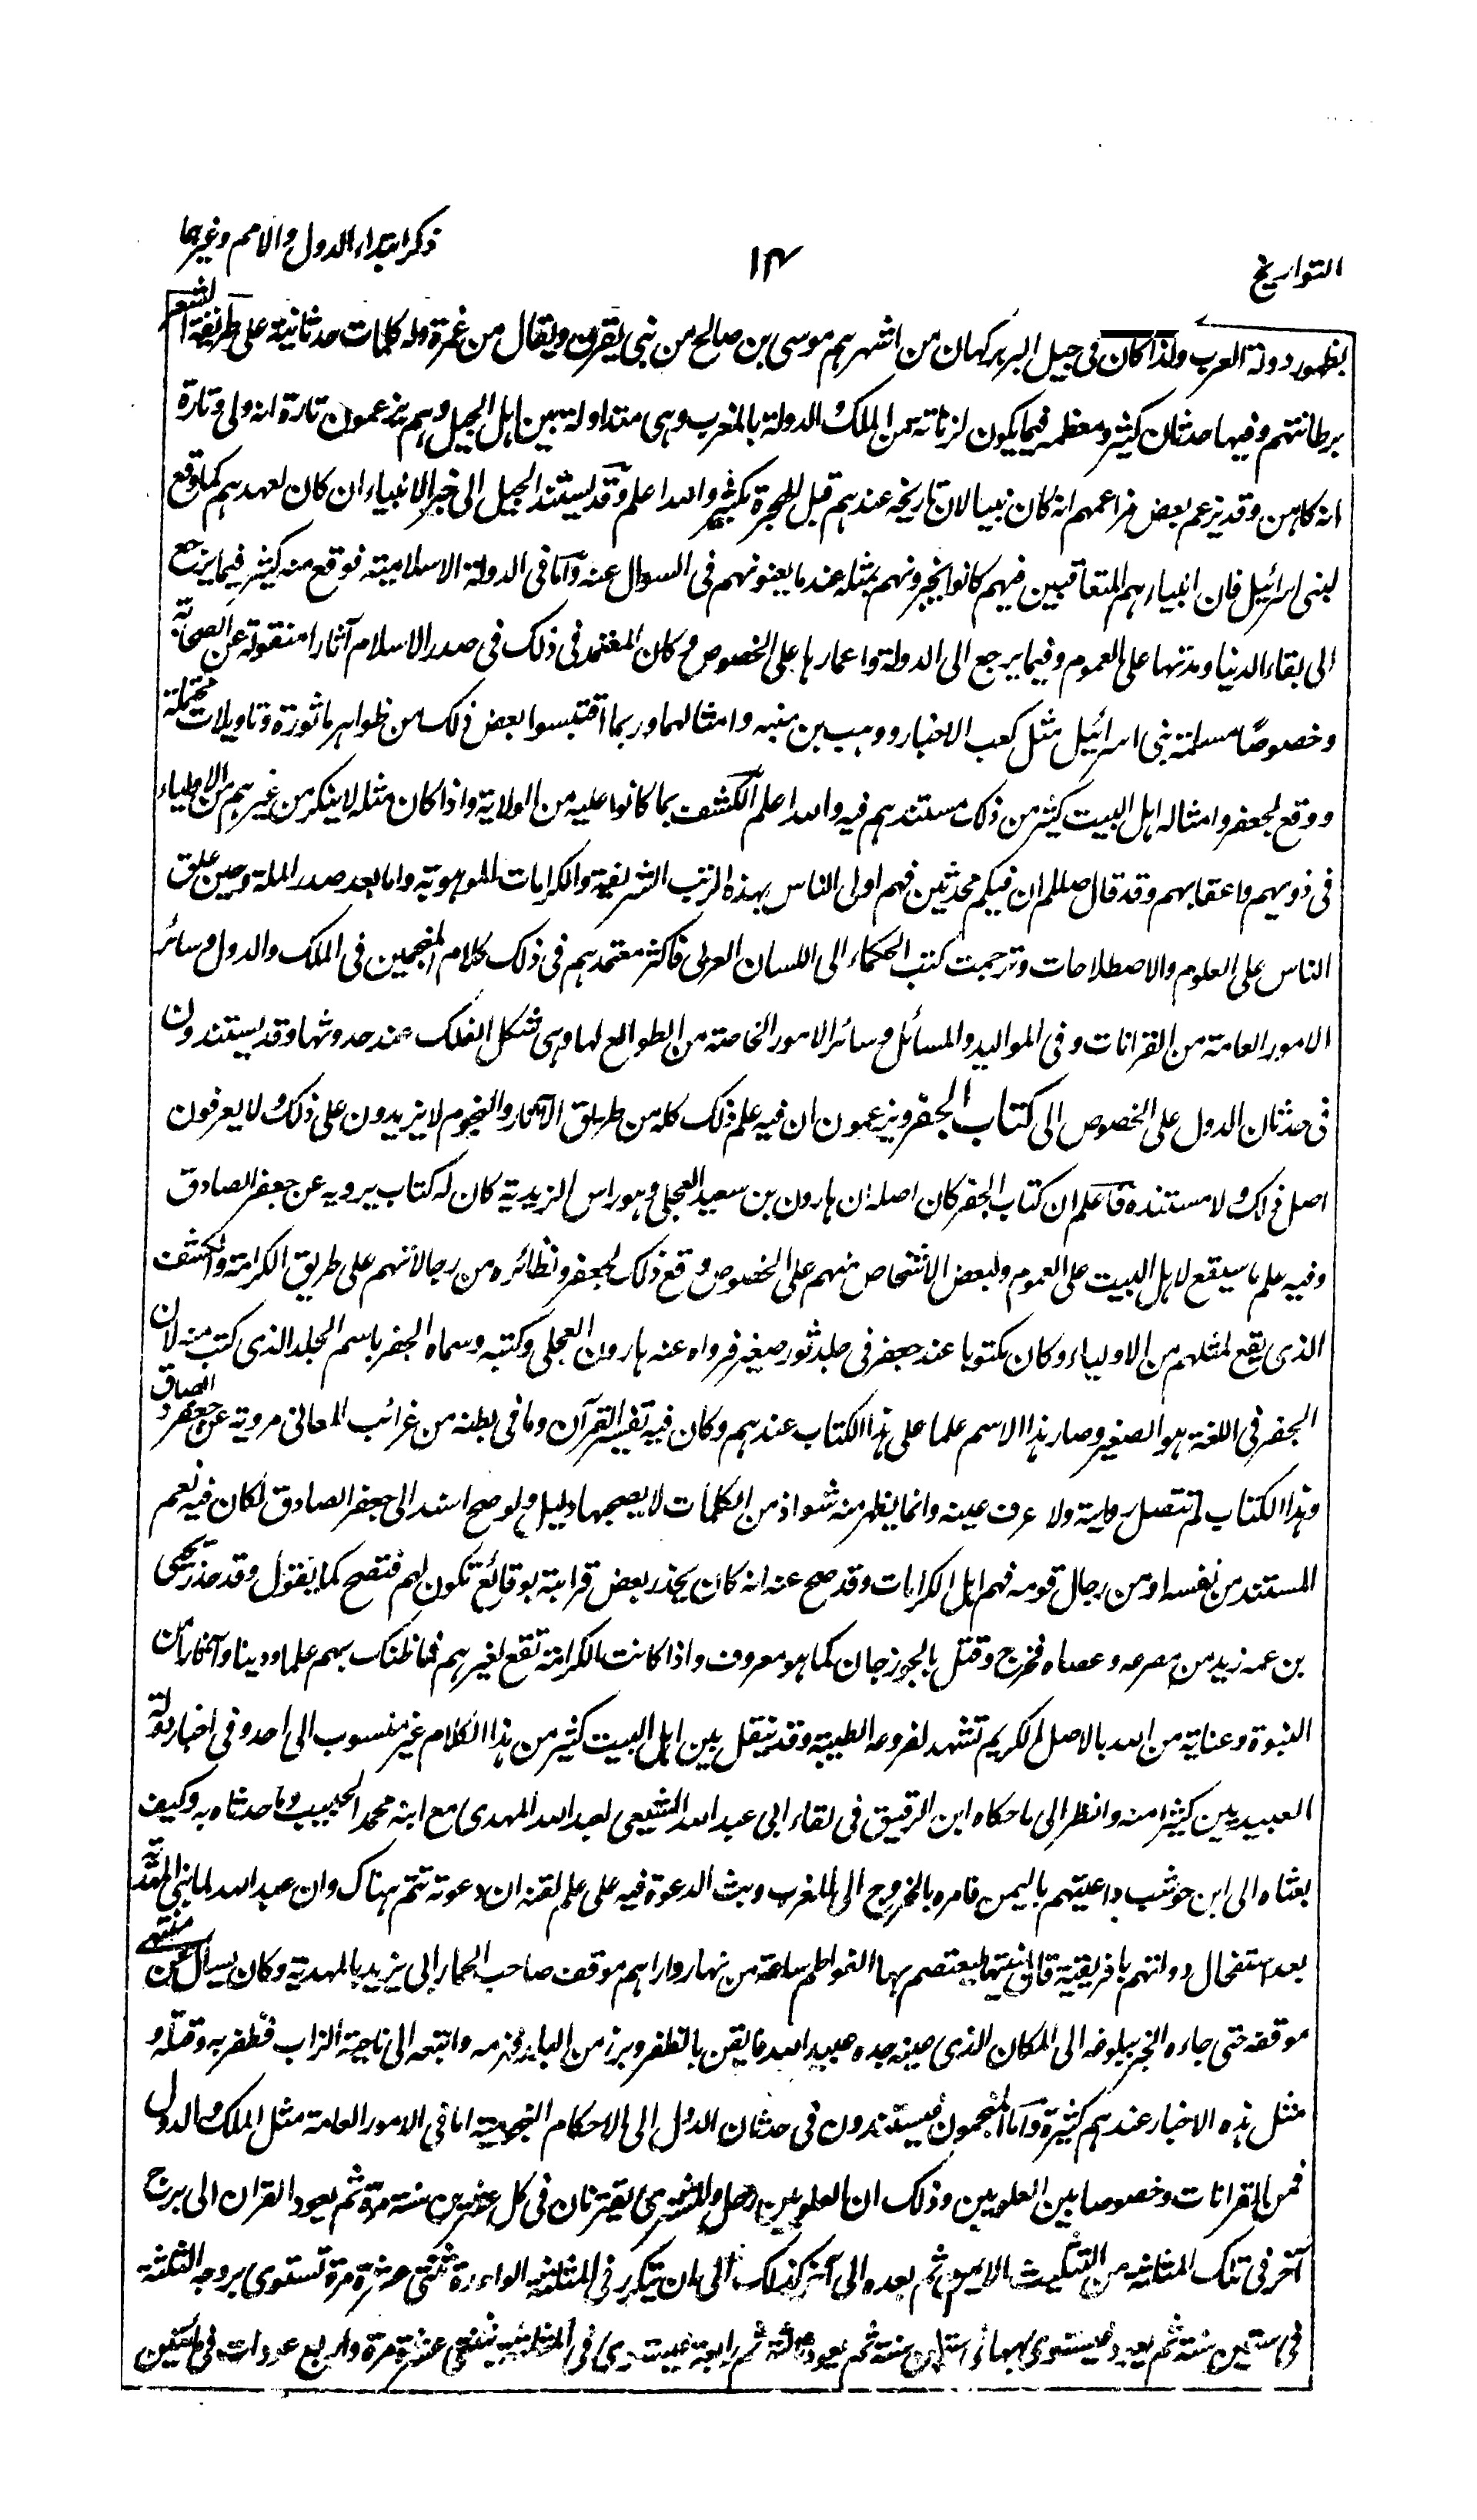 التواريخ
١٣
ذكر ابتداء الدول والامم وغيرها
بظهور دولة العرب ولذا كان فى جيل البربر كهان من اشهرهم موسى بن صالح من بنى يفرن ويقال من غمرة وله كلمات حدثانية على طريقة الشعر
برطانتهم وفيها حدثان كثير ومعظمه فيما يكون لزناتة من الملك والدولة بالمغرب وهى متداولة بين اهل الجيل وهم يزعمون تارة انه ولى وتارة
انه كاهن وقد يزعم بعض مزاعمهم انه كان نبيا لان تاريخه عندهم قبل الهجرة بكثير والله اعلم وقد يستند الجيل الى خبر الانبياء ان كان لعهدهم كما وقع
لبنى اسرائيل فان انبياءهم المتعاقبين فيهم كانوا يخبرونهم بمثله عند ما يعنونهم فى السوال عنه واما فى الدولة الاسلامية فوقع منه كثير فيما يرجع
الى بقاء الدنيا ومدتها على العموم وفيما يرجع الى الدولة واعمارها على الخصوص وكان المعتمد فى ذلك فى صدر الاسلام آثارا منقولة عن الصحابة
وخصوصًا مسلمة بنى اسرائيل مثل كعب الاخبار ووهب بن منبه وامثالهما وربما اقتبسوا بعض ذلك من ظواهر ماثورة وتاويلات محتملة
ووقع لجعفر وامثاله اهل البيت كثير من ذلك مستندهم فيه والله اعلم الكشف بما كانوا عليه من الولاية واذا كان مثله لا ينكر من غيرهم من الاولياء
فى ذويهم واعقابهم وقد قال صللم ان فيكم محدثين فهم اولى الناس بهذه الرتب الشريفة والكرامات الموهوبة واما بعد صدر الملة وحين علق
الناس على العلوم والاصطلاحات وترجمت كتب الحكماء الى اللسان العربى فاكثر معتمدهم فى ذلك كلام المنجمين فى الملك والدول وسائر
الامور العامة من القرانات وفى المواليد والمسائل وسائر الامور الخاصة من الطوالع لها وهى شكل الفلك عند حدوثها وقد يستندون
فى حدثان الدول على الخصوص الى كتاب الجفر ويزعمون ان فيه علم ذلك كله من طريق الآثار والنجوم لا يزيدون على ذلك ولا يعرفون
اصل ذلك ولا مستنده فاعلم ان كتاب الجفر كان اصله ان هارون بن سعيد العجلى وهو راس الزيدية كان له كتاب يرويه عن جعفر الصادق
وفيه علم ما سيقع لاهل البيت على العموم ولبعض الاشخاص منهم على الخصوص وقع ذلك لجعفر ونظائره من رجالاتهم على طريق الكرامة والكشف
الذى يقع لمثلهم من الاولياء وكان مكتوبا عند جعفر فى جلد ثور صغير فرواه عنه هارون العجلى وكتبه وسماه الجفر باسم الجلد الذى كتب منه لان
الجفر فى اللغة هو الصغير وصار هذا الاسم علما على هذا الكتاب عندهم وكان فيه تفسير القرآن وما فى بطنه من غرائب المعانى مروية عن جعفر الصادق
وهذا الكتاب لم تتصل روايته ولا عرف عينه وانما يظهر منه شواذ من الكلمات لا يصحبها دليل ولو صح اسند الى جعفر الصادق لكان فيه نعم
المستند من نفسه او من رجال قومه فهم اهل الكرامات وقد صح عنه انه كان يحذر بعض قرابته بوقائع تكون لهم فتصح كما يقول وقد حذر يحيى
بن عمه زيد من مصرعه وعصاه فخرج وقتل بالجوزجان كما هو معروف واذا كانت الكرامة تقع لغيرهم فما ظنك بهم علما ودينا وآثارا من
النبوة وعناية من الله بالاصل الكريم تشهد لفروعه الطيبة وقد ينقل بين اهل البيت كثير من هذا الكلام غير منسوب الى احد وفى اخبار دولة
العبيديين كثيرا منه وانظر الى ما حكاه ابن الرقيق فى لقاء ابى عبد الله الشيعى لعبد الله المهدى مع ابنه محمد الحبيب وما حدثاه به وكيف
بعثاه الى ابن حوشب داعيتهم باليمن فامره بالخروج الى المغرب وبث الدعوة فيه على علم لقنه ان دعوته تتم هناك وان عبد الله لما بنى المهدية
بعد استفحال دولتهم بافريقية قال بنيتها ليعتصم بها الفواطم ساعة من نهار واراهم موقف صاحب الحمار ابى يزيد بالمهدية وكان يسال عن منتهى
موقفه حتى جاءه الخبر ببلوغه الى المكان الذى عينه جده عبيد الله فايقن بالظفر وبرز من البلد فهزمه واتبعه الى ناحية الزاب فظفر به وقتله و
مثل هذه الاخبار عندهم كثيرة واما المنجمون فيستندون فى حدثان الدول الى الاحكام النجومية اما فى الامور العامة مثل الملك والدول
فمن القرانات وخصوصا بين العلويين وذلك ان العلويين زحل والمشترى يقترنان فى كل عشرين سنة مرة ثم يعود القران الى برج
آخر فى تلك المثلثة من التثليث الايمن ثم بعده الى آخر كذلك الى ان يتكرر فى المثلثة الواحدة ثنتى عشرة مرة تستوى بروجه الثلثة
فى ستين سنة ثم يعود فيستوى بها فى ستين سنة ثم يعود ثالثة ثم رابعة فيستوى فى المثلثة بثنتى عشرة مرة واربع عودات فى مائتين